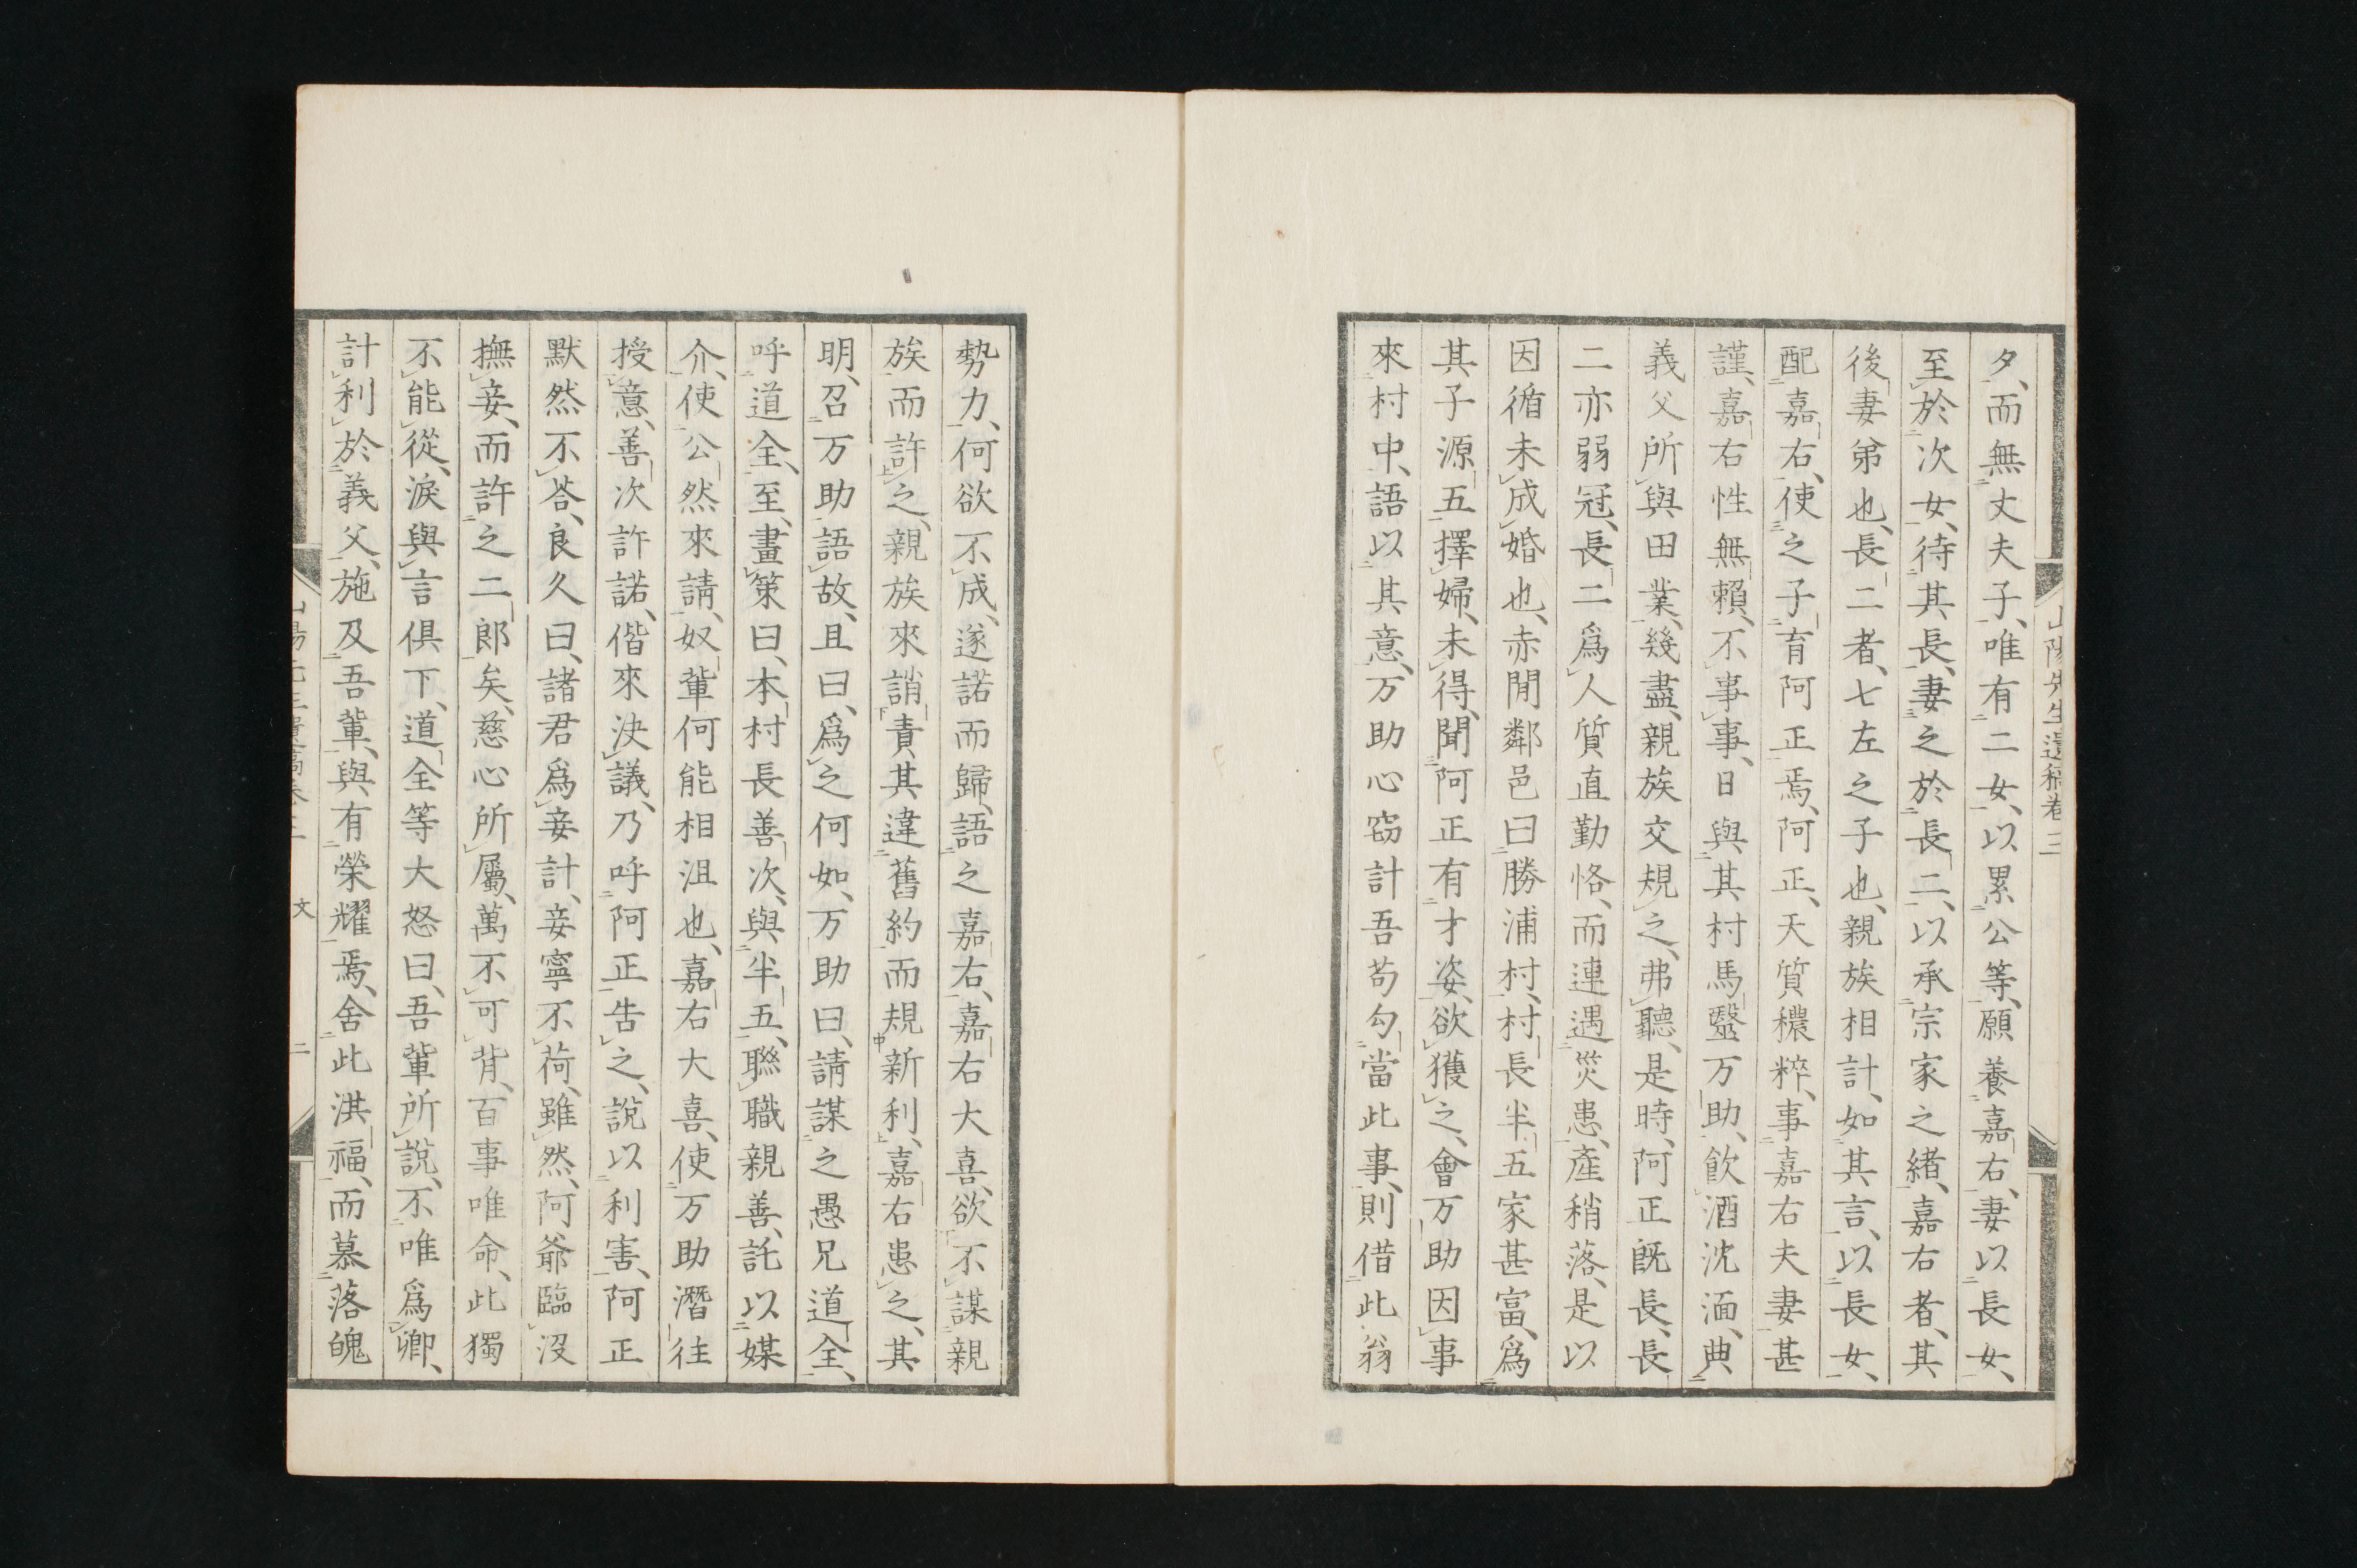 山陽先生遺稿卷三
夕、而無丈夫子、唯有二女、以累公等、願養嘉右、妻以長女、
至於次女、待其長、妻之於長二、以承宗家之緒、嘉右者、其
後妻弟也、長二者、七左之子也、親族相計、如其言、以長女、
配嘉右、使之子育阿正焉、阿正、天質穠粹、事嘉右夫妻甚
謹、嘉右性無賴、不事事、日與其村馬毉万助、飲酒沈湎、典
義父所與田業、幾盡、親族交規之、弗聽、是時、阿正既長、長
二亦弱冠、長二爲人質直勤恪、而連遇災患、產稍落、是以
因循未成婚也、赤間鄰邑曰勝浦村、村長半五家甚富、爲
其子源五擇婦、未得、聞阿正有才姿、欲獲之、會万助因事
來村中、語以其意、万助心窃計吾苟勾當此事、則借此翁
勢力、何欲不成、遂諾而歸、語之嘉右、嘉右大喜、欲不謀親
族而許之、親族來誚責其違舊約而規新利、嘉右患之、其
明、召万助語故、且曰、爲之何如、万助曰、請謀之愚兄道全、
呼道全、至、畫策曰、本村長善次、與半五、聯職親善、託以媒
介、使公然來請、奴輩何能相沮也、嘉右大喜、使万助潛往
授意、善次許諾、偕來決議、乃呼阿正告之、說以利害、阿正
默然不荅、良久曰、諸君爲妾計、妾寧不荷、雖然、阿爺臨沒
撫妾、而許之二郎矣、慈心所屬、萬不可背、百事唯命、此獨
不能從、淚與言俱下、道全等大怒曰、吾輩所說、不唯爲卿、
計利於義父、施及吾輩、與有榮耀焉、舍此洪福、而慕落魄
文
二